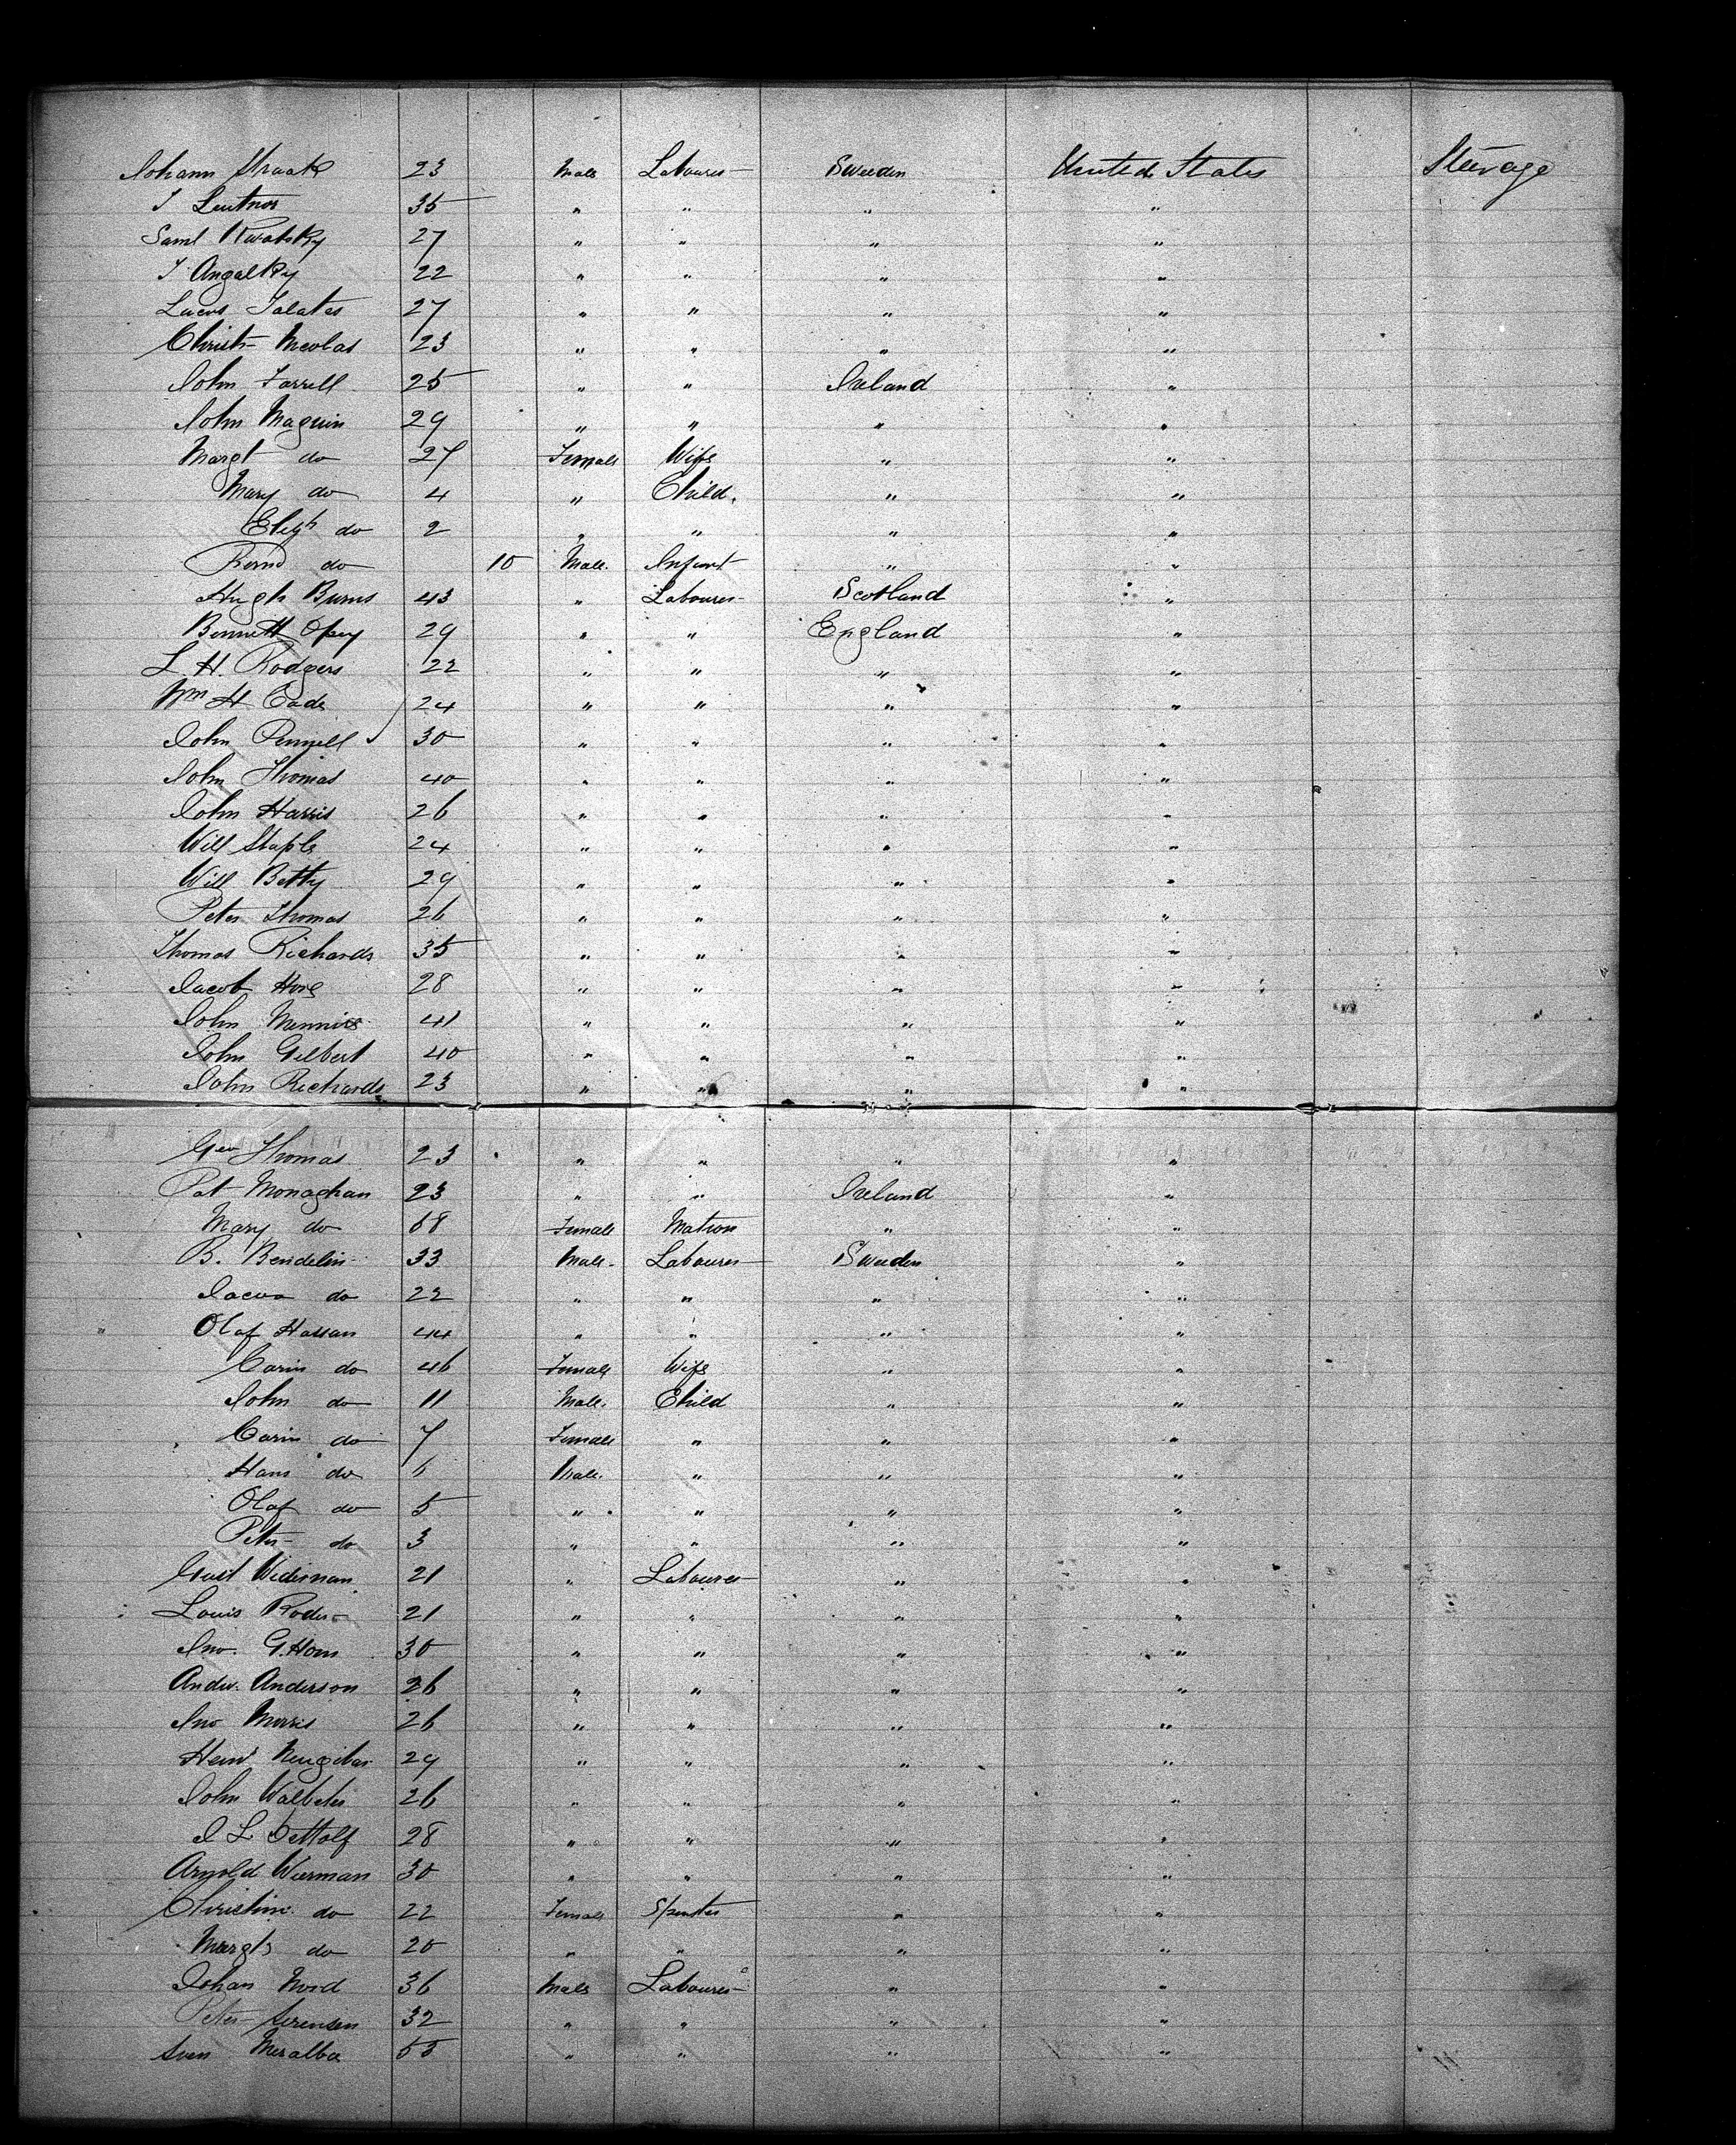 Johann Straak 23 Male Labourer Sweeden United States Steerage
J Leutnor 35 " " " "
Saml Kwatsky 27 " " " "
J Angalky 22 " " " "
Lucas Talates 27 " " " "
Christ Nicolas 23 " " " "
John Farrell 25 " " Ireland "
John Maguin 29 " " " "
Margt do 27 Female Wife " "
Mary do 4 " Child. " "
Elizh do 2 " " " "
Bernd do 10 Male. Infant " "
Hugh Burns 43 " Labourer Scotland "
Bennett Opey 29 " " England "
L H. Rodgers 22 " " " "
Wm H Eade 24 " " " "
John Pennell 30 " " " "
John Thomas 40 " " " "
John Harris 26 " " " "
Will Staple 24 " " " "
Will Betty 29 " " " "
Peter Thomas 26 " " " "
Thomas Richards 35 " " " "
Jacob Hore 28 " " " "
John Minnis 41 " " " "
John Gilbert 40 " " " "
John Richards 23 " " " "
Geo Thomas 23 " " " "
Pat Monaghan 23 " " Ireland "
Mary do 68 Female Matron " "
B. Bendelin 33 Male Labourer Sweeden "
Jacua do 22 " " " "
Olaf Hassan 44 " " " "
Carin do 46 Female Wife " "
John do 11 Male. Child " "
Carin do 7 Female " " "
Hans do 6 Male. " " "
Olaf do 5 " " " "
Peter do 3 " " " "
Gust Widerman 21 " Labourer " "
Louis Roder 21 " " " "
Jno. G. Hom 30 " " " "
Andw. Anderson 26 " " " "
Jno Morris 26 " " " "
Heinr 29 " " " "
John Walbeter 26 " " " "
J L Dettolf 28 " " " "
Arnold Wierman 30 " " " "
Christine do 22 Female Spinster " "
Margt do 20 " " " "
Johan Nord 36 Male Labourer " "
Peter Serensen 32 " " " "
Sven 53 " " " "